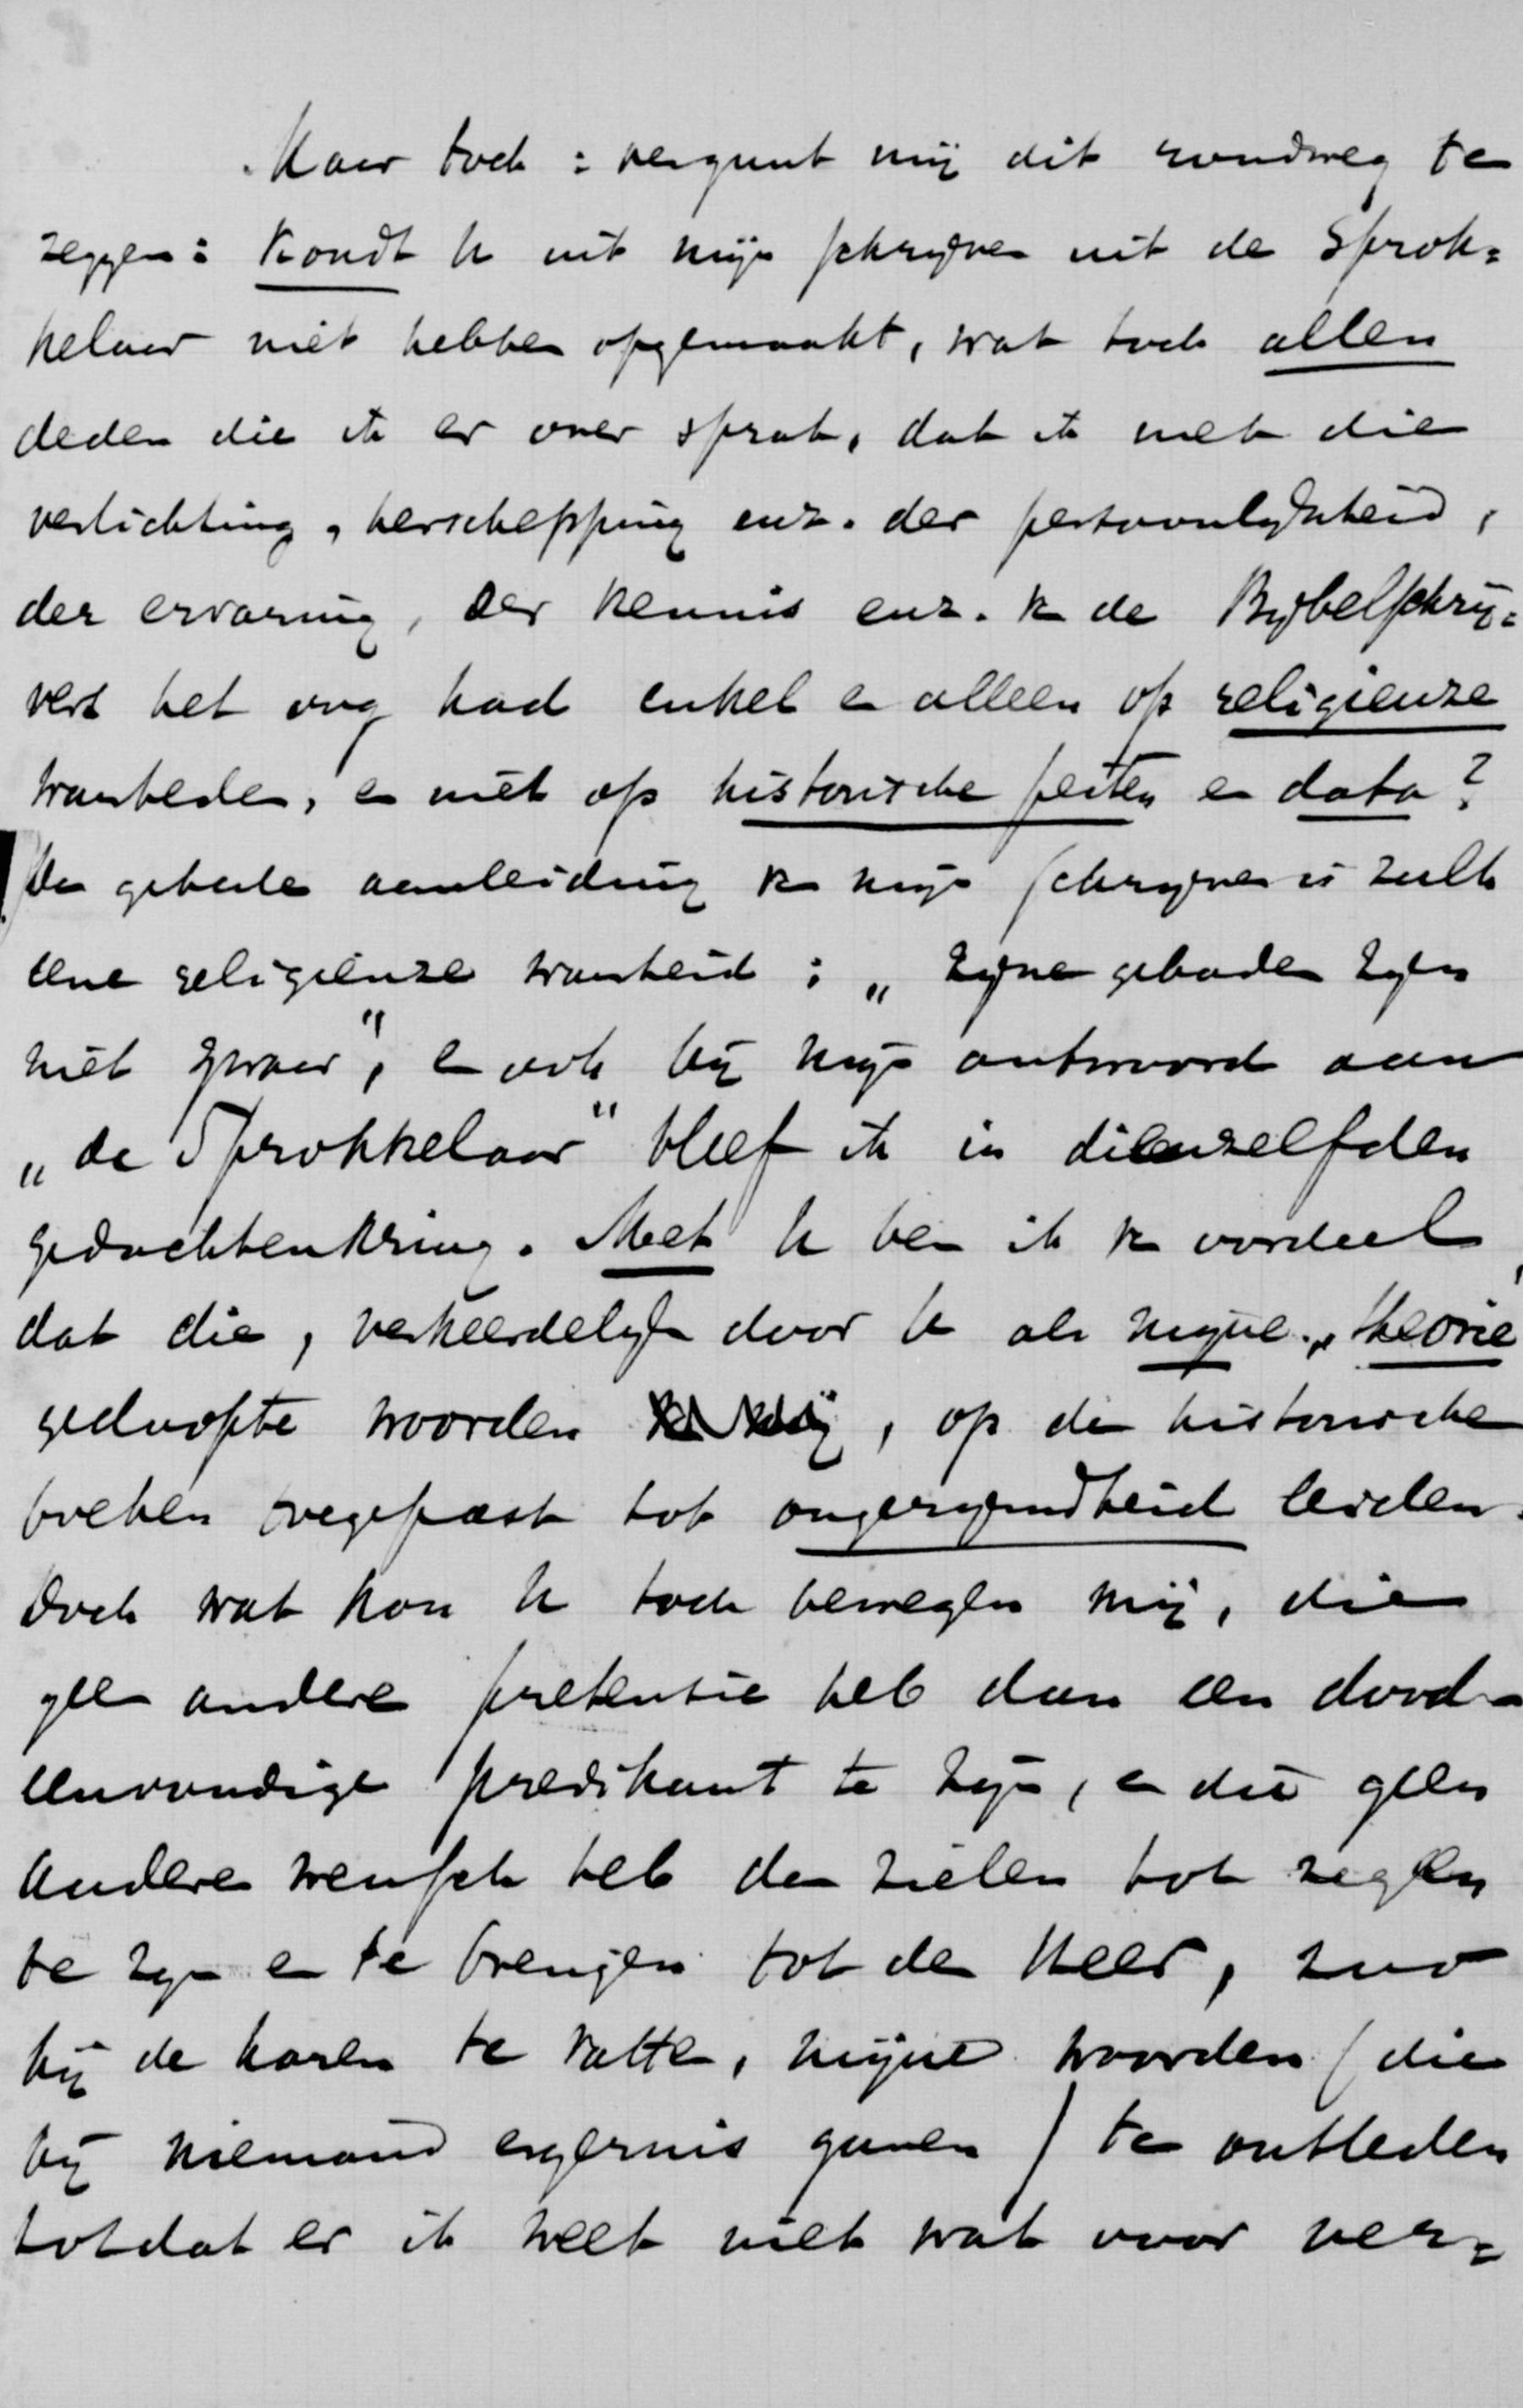 Maar toch: vergunt mij dit rondweg te
zeggen: kondt U uit mijn schrijven uit de Sprok=
kelaar niet hebben opgemaakt, wat toch allen
deden die ik er over sprak, dat ik met die
verlichting, herschepping enz. der persoonlijkheid,
der ervaring, der kennis enz. v. de Bijbelschrij=
vers het oog had enkel en alleen op religieuze
waarheden, en niet op historische feiten en data?
De geheele aanleiding v. mijn schrijven is zulk
eene religieuze waarheid: „zijne geboden zijn
niet zwaar", en ook bij mijn antwoord aan
„de Sprokkelaar" bleef ik in dienzelfden
gedachtenkring. Met U ben ik v. oordeel,
dat die, verkeerdelijk door U als mijne „theorie"
gedoopte woorden, op de historische
boeken toegepast tot ongerijmdheid leiden.
Doch wat kon U toch bewegen mij, die
geen andere pretensie heb dan een dood-
eenvoudige predikant te zijn, en die geen
andere wensch heb den zielen tot zegen
te zijn en te brengen tot den Heer, zoo
bij de haren te vatten, mijne woorden (die
bij niemand ergernis gaven) te ontleden
totdat er ik weet niet wat voor ver=